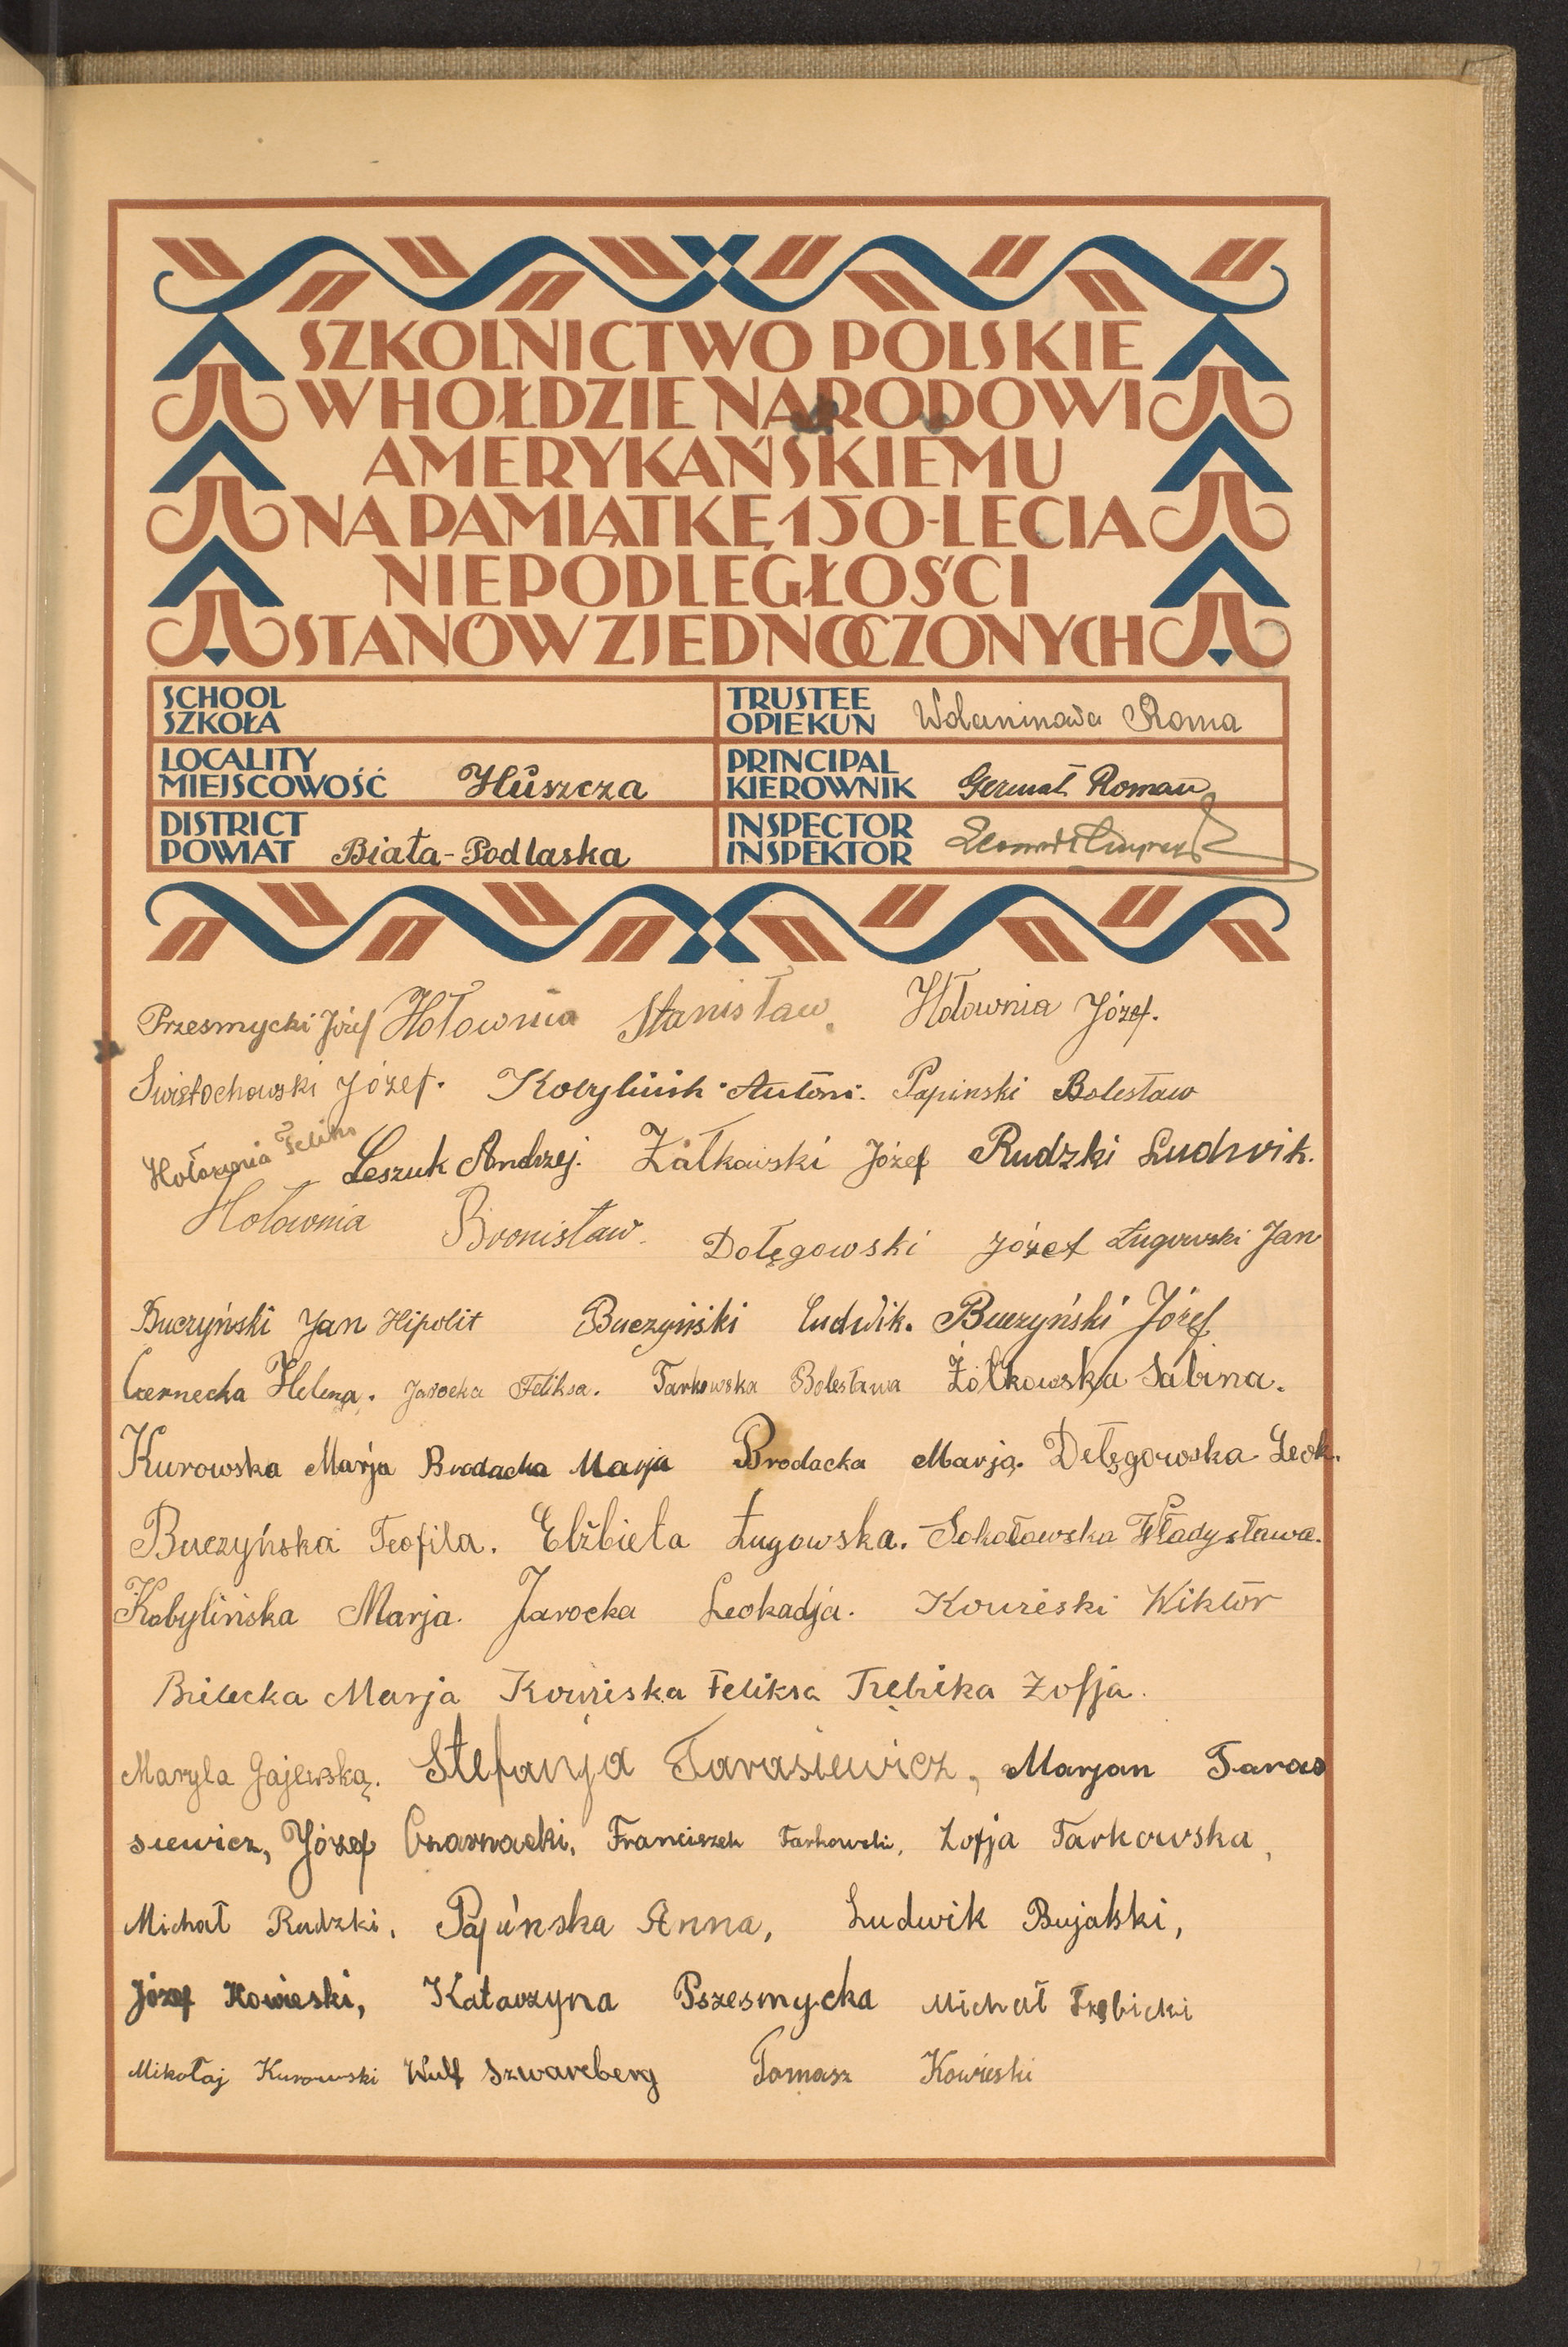 SZKOLNICTWO POLSKIE
W HOŁDZIE NARODOWI
AMERYKAŃSKIEMU
NA PAMIĄTKĘ 150-LECIA
NIEPODLEGŁOŚCI
STANÓW ZJEDNOCZONYCH
SCHOOL
SZKOŁA
TRUSTEE
OPIEKUN Wolaninowa Roma
LOCALITY
MIEJSCOWOŚĆ Huszcza
PRINCIPAL
KIEROWNIK Germat Roman
DISTRICT
POWIAT Biała-Podlaska
INSPECTOR
INSPEKTOR
Przesmycki Józef Hołownia Stanisław. Hołownia Józef.
Świętochowski Józef. Kobyliński Antoni. Papinski Bolesław
Hołownia Feliks Leszuk Andrzej. Żółkowski Józef Rudzki Ludwik.
Hołownia Bronisław. Dołęgowski Józef Ługowski Jan
Buczyński Jan Hipolit Buczyński Ludwik. Buczyński Józef
Czernecka Helena. Jarocka Feliksa. Tarkowska Bolesława Żółkowska Sabina.
Kurowska Marja Brodacka Marja Brodacka Marja. Dełęgowska Leok.
Buczyńska Teofila. Elżbieta Ługowska. Sokołowska Władysława.
Kobylińska Marja. Jarocka Leokadja. Kowieski Wiktor
Bielecka Marja Kowieska Feliksa Trębicka Zofja.
Maryla Gajewską. Stefanja Tarasiewicz, Marjan Taras
siewicz, Józef Czarnacki, Franciszek Tarkowski, Zofja Tarkowska,
Michał Rudzki, Papińska Anna, Ludwik Bujalski,
Józef Kowieski, Katarzyna Pszesmycka Michał Trębicki
Mikołaj Kurowski Wulf Szwarcberg Tomasz Kowieski